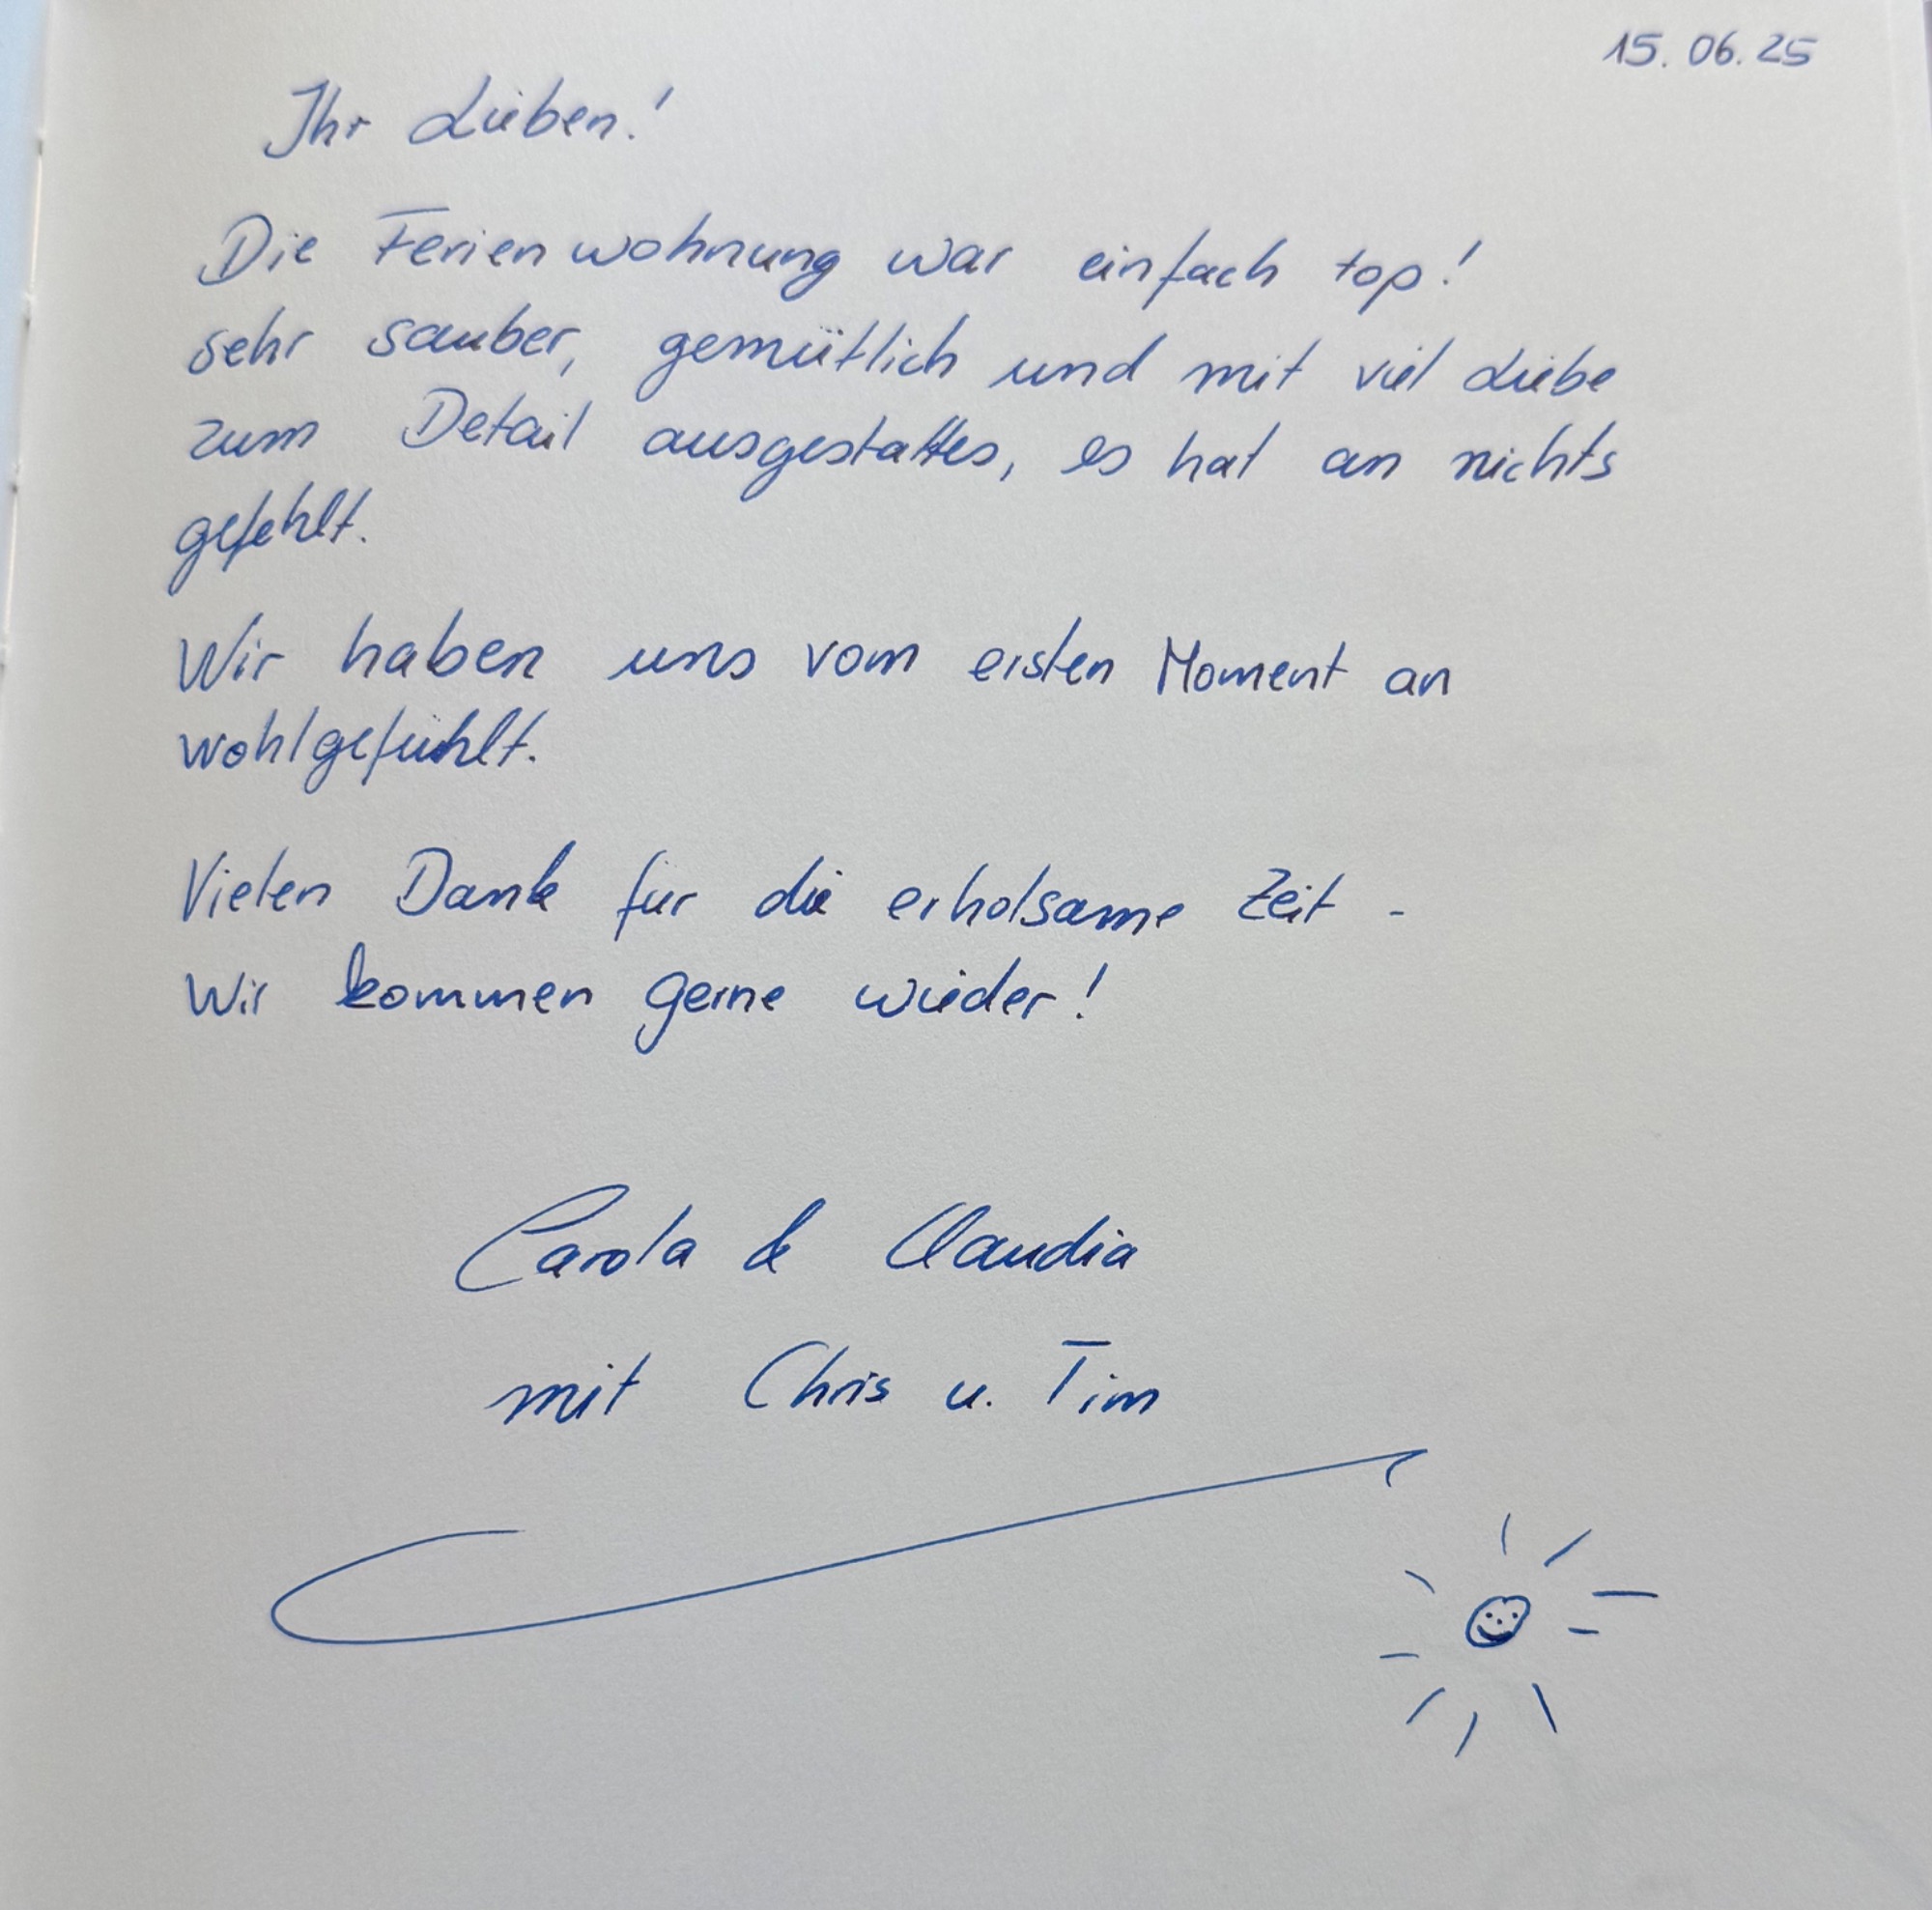 15.06.25
Ihr Lieben!
Die Ferienwohnung war einfach top!
sehr sauber, gemütlich und mit viel Liebe
zum Detail ausgestattes, es hat an nichts
gefehlt.
Wir haben uns vom ersten Moment an
wohlgefühlt.
Vielen Dank für die erholsame Zeit -
Wir kommen gerne wieder!
Carola & Claudia
mit Chris u. Tim